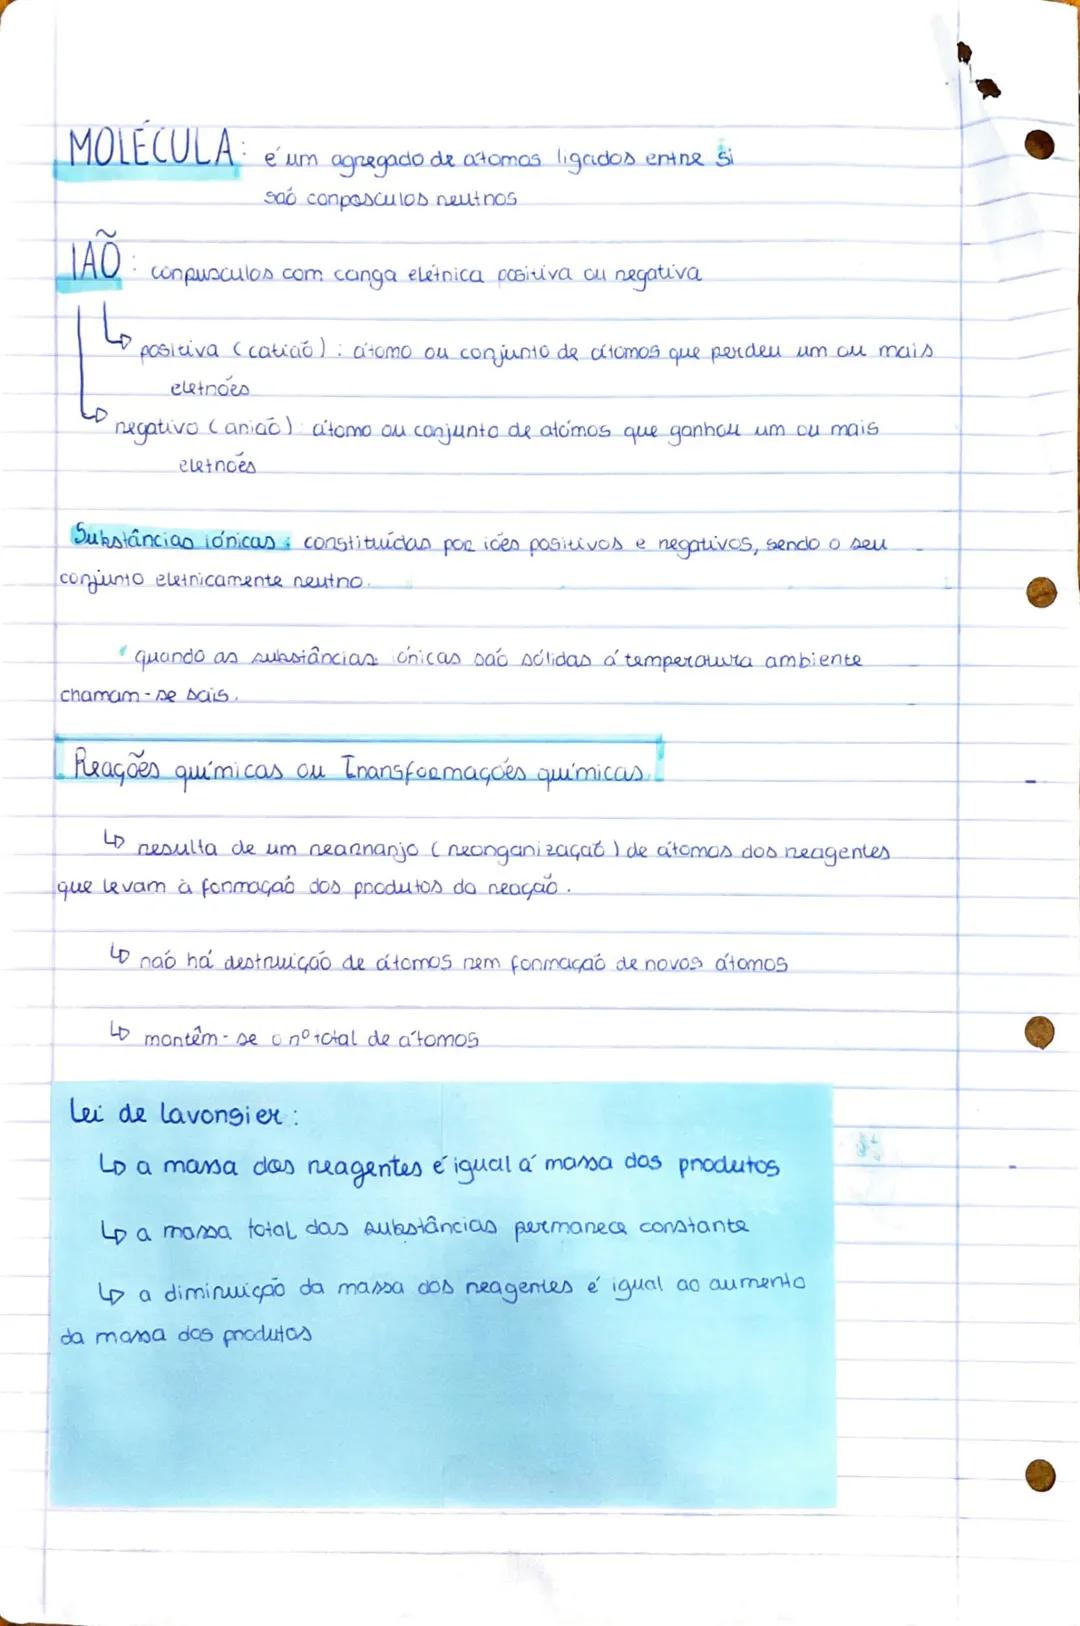 MOLÉCULA: é um agregado de átomos ligados entre si
são corpusculos neutros
IÃO: corpusculos com carga elétrica positiva ou negativa
↳ positiva (catião): átomo ou conjunto de átomos que perdeu um ou mais
eletrões
↳ negativo (anião): átomo ou conjunto de atómos que ganhou um ou mais
eletrões
Substâncias iónicas: constituídas por iões positivos e negativos, sendo o seu
conjunto eletricamente neutro.
quando as substâncias iónicas são sólidas á temperatura ambiente
chamam-se sais.
Reações químicas ou Transformações químicas.
↳ resulta de um rearranjo (reorganização) de átomos dos reagentes
que levam à formação dos produtos da reação.
↳ não há destruição de átomos nem formação de novos átomos
↳ mantêm-se o nº total de átomos
Lei de Lavonsier:
↳ a massa dos reagentes é igual á massa dos produtos
↳ a massa total das substâncias permanece constante
↳ a diminuição da massa dos reagentes é igual ao aumento
da massa dos produtos